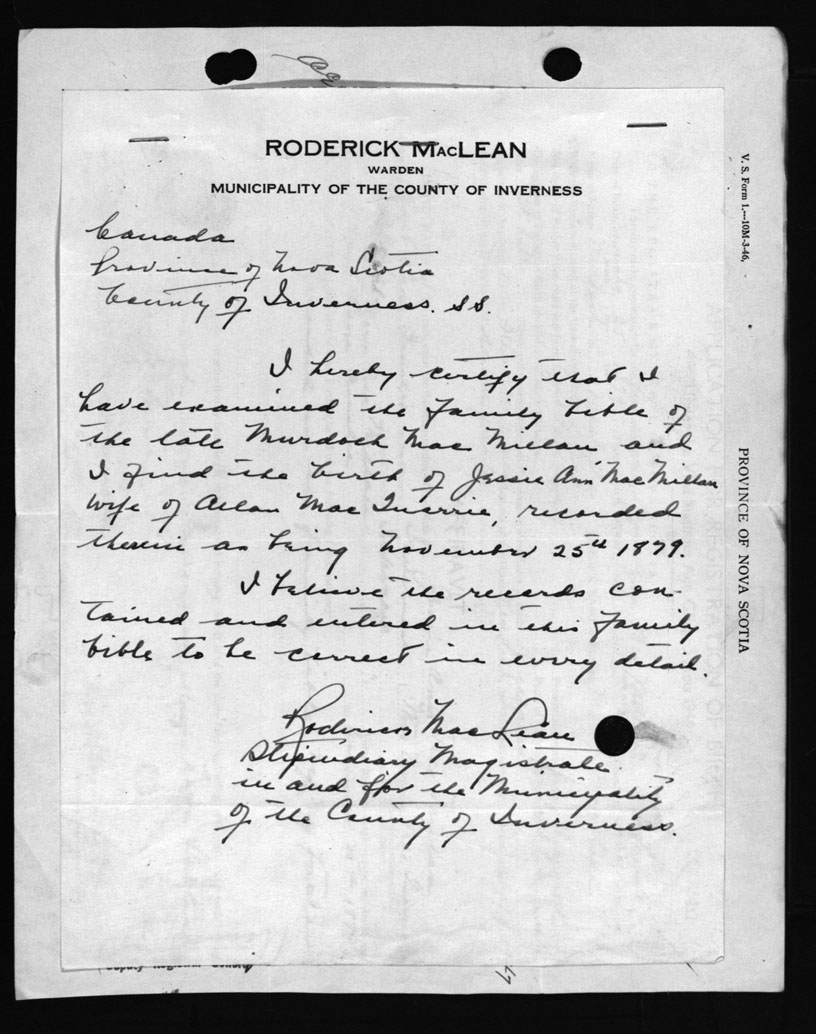 RODERICK MACLEAN
WARDEN
MUNICIPALITY OF THE COUNTY OF INVERNESS
Canada
Province of Nova Scotia
County of Inverness. S.S.
I hereby certify that I
have examined the family bible of
the late Murdoch Mac Millan and
I find the birth of Jessie Ann Mac Millan
wife of Allan Mac Quarrie, recorded
therein as being November 25th 1879.
I believe the records con-
tained and entered in this family
bible to be correct in every detail.
Roderick MacLean
Stipendiary Magistrate
in and for the Municipality
of the County of Inverness.
V. S. Form 1.—10M-3-46.
PROVINCE OF NOVA SCOTIA